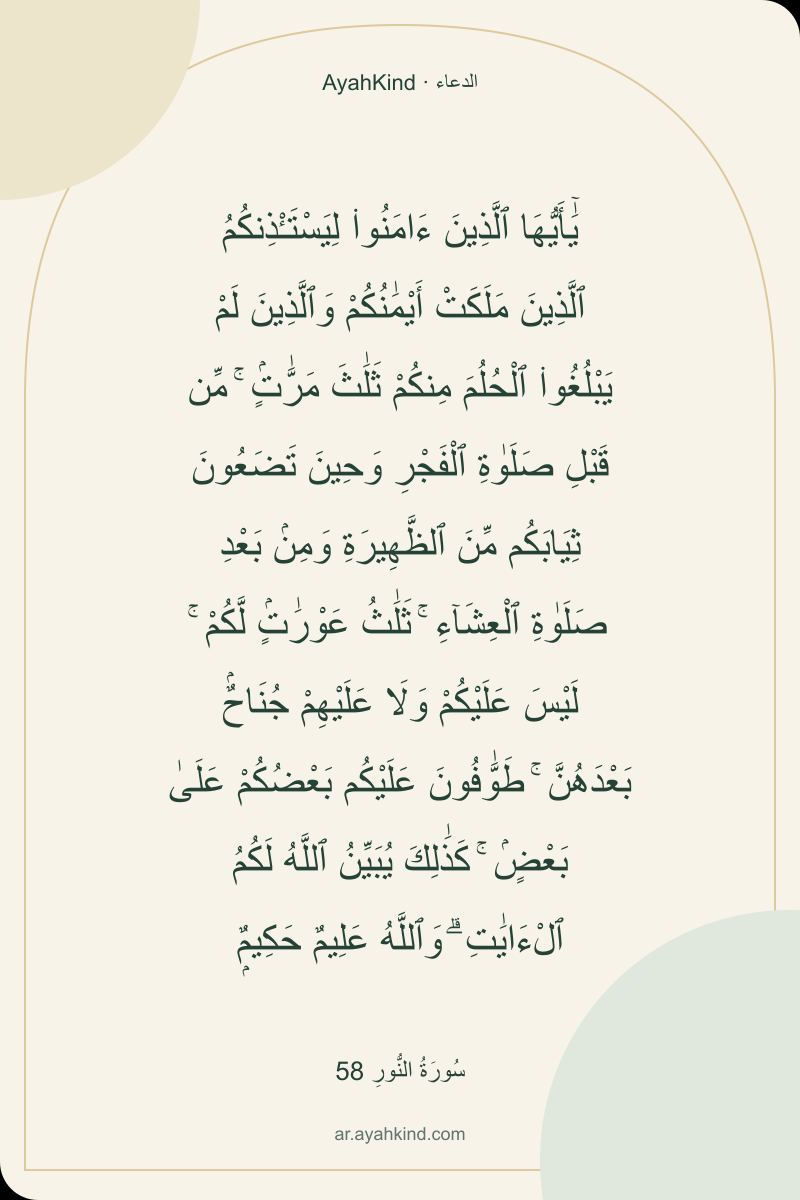 AyahKind · الدعاء
يَٰٓأَيُّهَا ٱلَّذِينَ ءَامَنُوا۟ لِيَسْتَـْٔذِنكُمُ
ٱلَّذِينَ مَلَكَتْ أَيْمَٰنُكُمْ وَٱلَّذِينَ لَمْ
يَبْلُغُوا۟ ٱلْحُلُمَ مِنكُمْ ثَلَٰثَ مَرَّٰتٍۢ ۚ مِّن
قَبْلِ صَلَوٰةِ ٱلْفَجْرِ وَحِينَ تَضَعُونَ
ثِيَابَكُم مِّنَ ٱلظَّهِيرَةِ وَمِنۢ بَعْدِ
صَلَوٰةِ ٱلْعِشَآءِ ۚ ثَلَٰثُ عَوْرَٰتٍۢ لَّكُمْ ۚ
لَيْسَ عَلَيْكُمْ وَلَا عَلَيْهِمْ جُنَاحٌۢ
بَعْدَهُنَّ ۚ طَوَّٰفُونَ عَلَيْكُم بَعْضُكُمْ عَلَىٰ
بَعْضٍۢ ۚ كَذَٰلِكَ يُبَيِّنُ ٱللَّهُ لَكُمُ
ٱلْءَايَٰتِ ۗ وَٱللَّهُ عَلِيمٌ حَكِيمٌۭ
سُورَةُ النُّورِ 58
ar.ayahkind.com